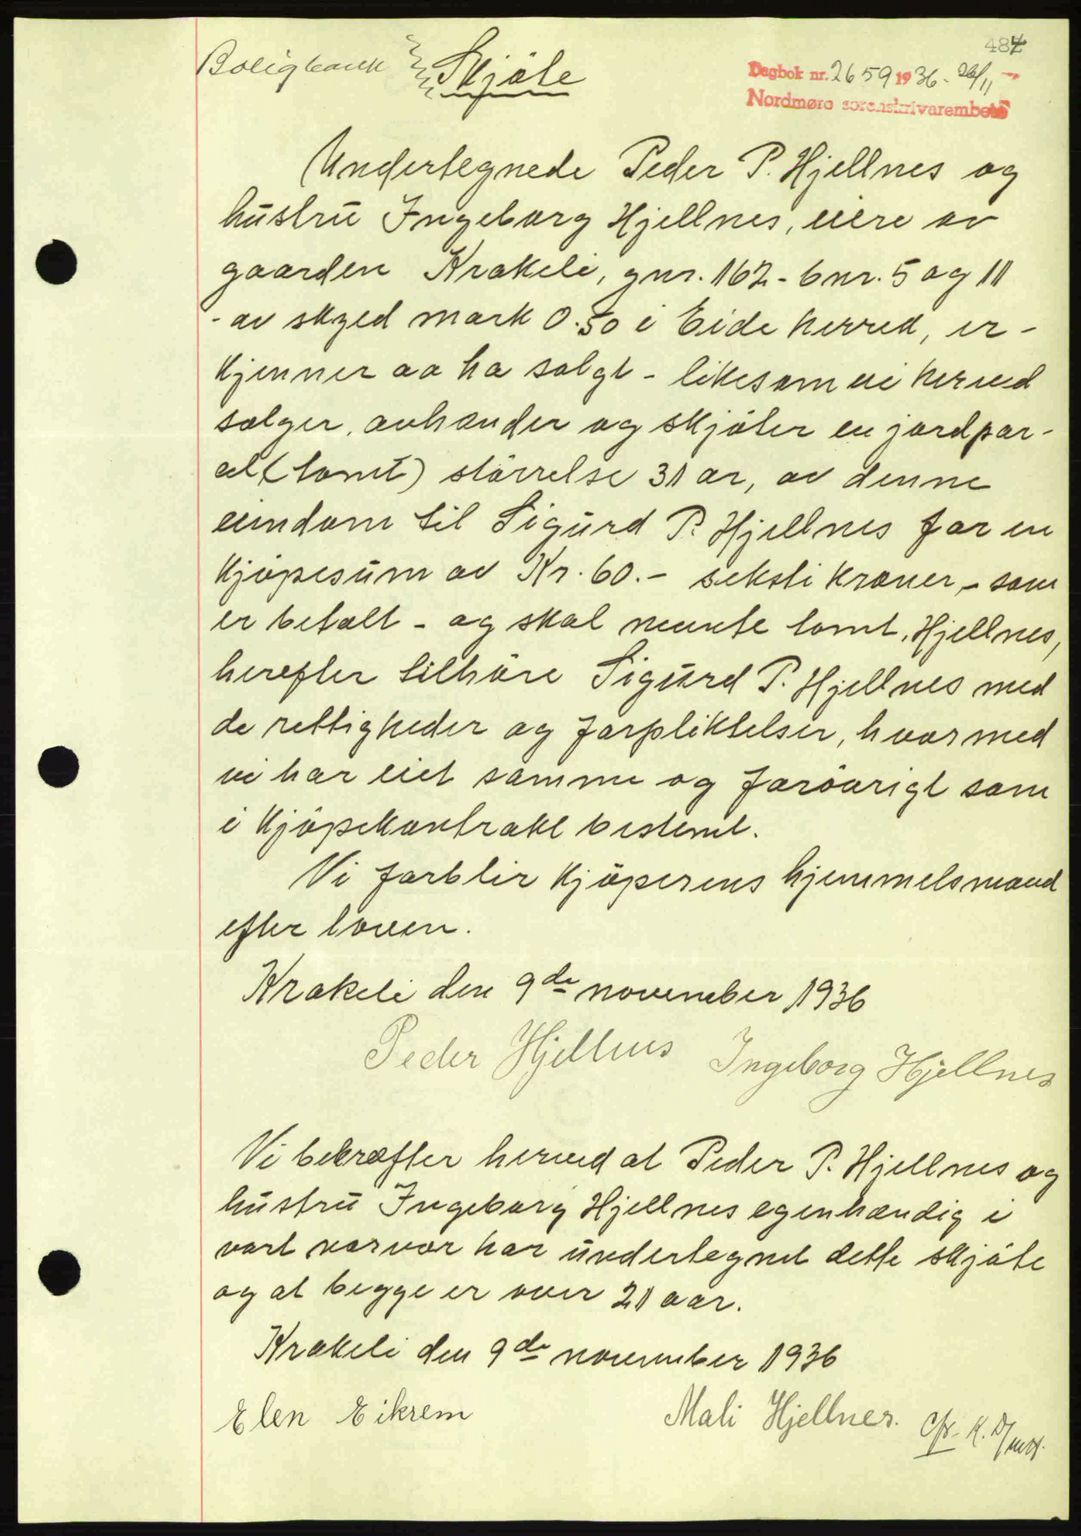 487
Boligbank Skjöte
Dagbok nr. 2659 1936 - 26/11
Nordmøre sorenskrivarembete
Undertegnede Peder P. Hjellnes og
hustru Ingeborg Hjellnes, eiere av
gaarden Krakeli, gnr. 167 - bnr. 5 og 11
- av skyld mark 0.50 i Eide herred, er-
kjenner aa ha solgt - likesom vi herved
sælger, avhænder og skjöter en jordpar-
cel (tomt) störrelse 31 ar, av denne
eiendom til Sigurd P. Hjellnes for en
kjöpesum av Kr. 60.- seksti kroner, - som
er betalt - og skal nævnte tomt, Hjellnes,
herefter tilhöre Sigurd P. Hjellnes med
de rettigheder og forpliktelser, hvormed
vi har eiet samme og foröverigt som
i kjöpekontrakt bestemt.
Vi forblir kjöperens hjemmelsmænd
efter loven.
Krakeli den 9de november 1936
Peder Hjellnes Ingeborg Hjellnes
Vi bekræfter herved at Peder P. Hjellnes og
hustru Ingeborg Hjellnes egenhændig i
vort nærvær har undertegnet dette skjöte
og at begge er over 21 aar.
Krakeli den 9de november 1936
Elen Eikrem Mali Hjellnes.